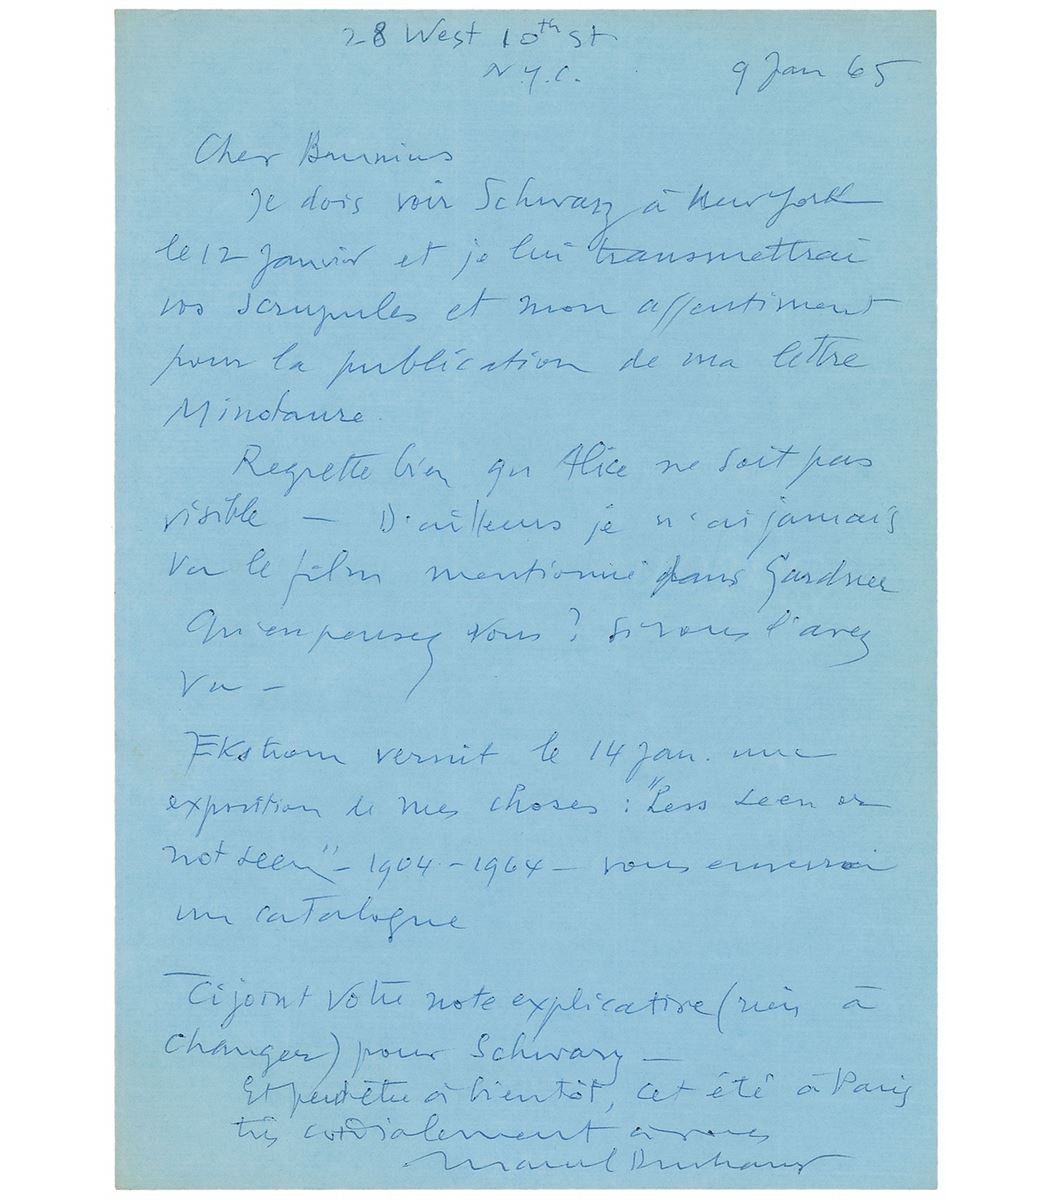 28 West 10th St
N.Y.C.
9 Jan 65
Cher Brunius
Je dois voir Schwarz à New York
le 12 Janvier et je lui transmettrai
vos scrupules et mon assentiment
pour la publication de ma lettre
Minotaure.
Regrette bien que Alice ne soit pas
visible — D'ailleurs je n'ai jamais
vu le film mentionné dans Gardner
Qu'en pensez vous ? si vous l'avez
vu —
Ekstrom vernit le 14 Jan. une
exposition de mes choses : "Less seen or
not seen" — 1904 - 1964 — vous enverrai
un catalogue
Ci joint votre note explicative (rien à
changer) pour Schwarz —
Et peut être à bientôt, cet été à Paris
très cordialement à vous
Marcel Duchamp